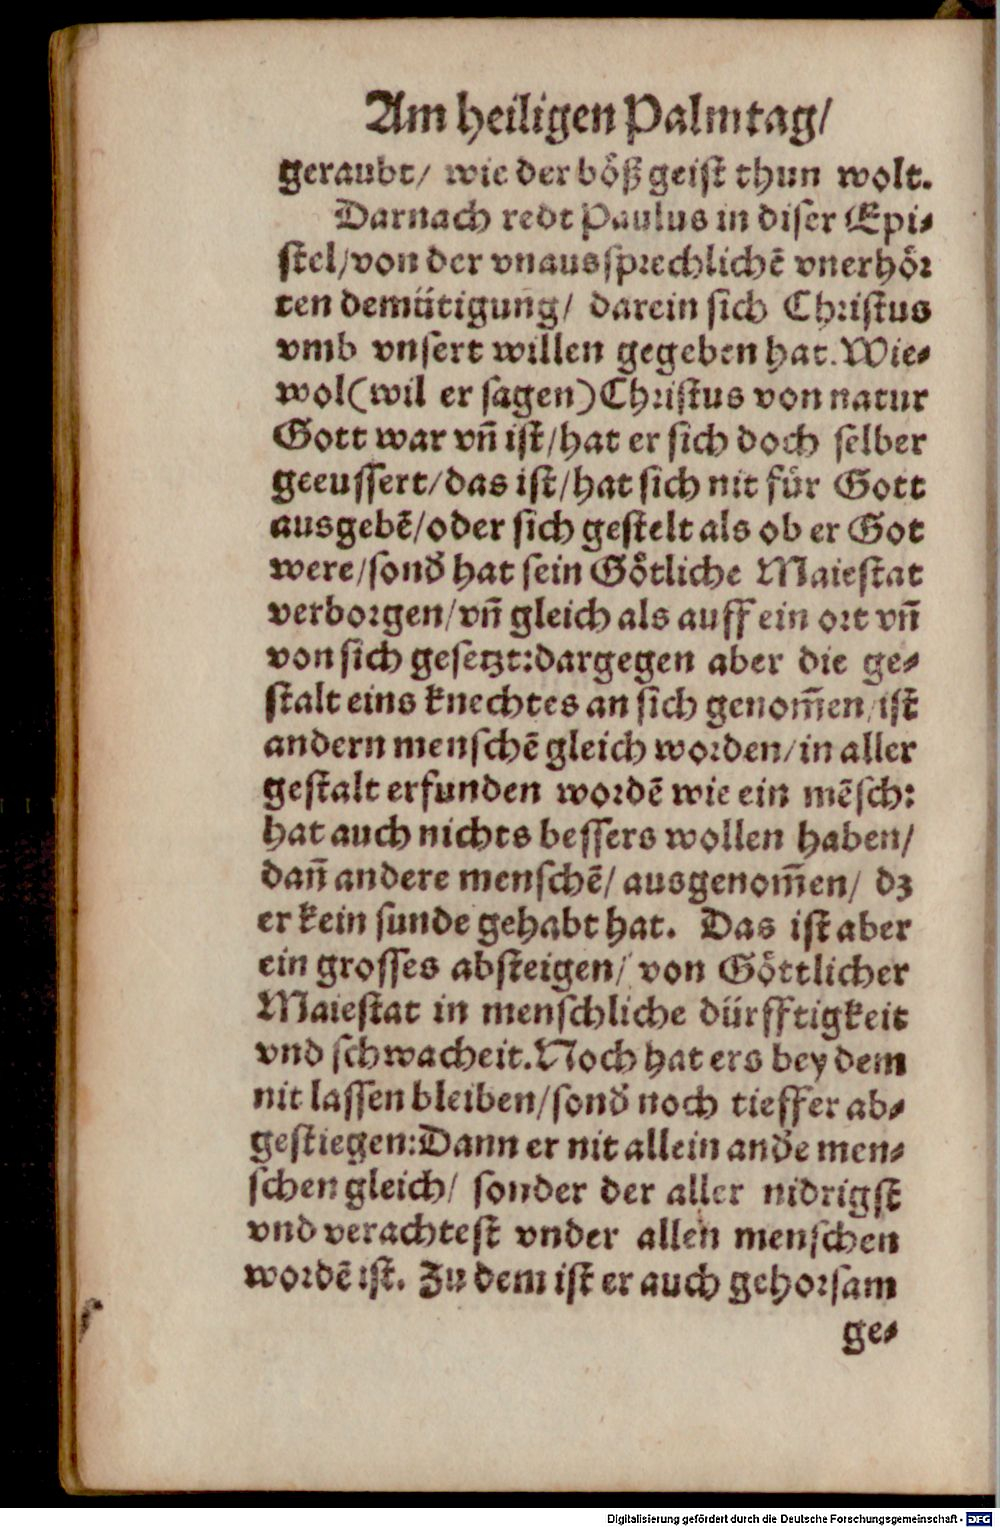 Am heiligen Palmtag/
geraubt/ wie der böß geist thun wolt.
Darnach redt Paulus in diser Epi-
stel/von der vnaussprechlichē vnerhör
ten demütigung/ darein sich Christus
vmb vnsert willen gegeben hat. Wie-
wol(wil er sagen)Christus von natur
Gott war vñ ist/hat er sich doch selber
geeussert/das ist/hat sich nit für Gott
ausgebē/oder sich gestelt als ob er Got
were/sond̄ hat sein Götliche Maiestat
verborgen/vñ gleich als auff ein ort vñ
von sich gesetzt:dargegen aber die ge-
stalt eins knechtes an sich genom̄en/ist
andern menschē gleich worden/in aller
gestalt erfunden wordē wie ein mēsch:
hat auch nichts bessers wollen haben/
dañ andere menschē/ ausgenom̄en/ dz
er kein sunde gehabt hat. Das ist aber
ein grosses absteigen/ von Göttlicher
Maiestat in menschliche dürfftigkeit
vnd schwacheit. Noch hat ers bey dem
nit lassen bleiben/sond̄ noch tieffer ab-
gestiegen:Dann er nit allein and̄e men-
schen gleich/ sonder der aller nidrigst
vnd verachtest vnder allen menschen
wordē ist. Zu dem ist er auch gehorsam
ge-
Digitalisierung gefördert durch die Deutsche Forschungsgemeinschaft - DFG